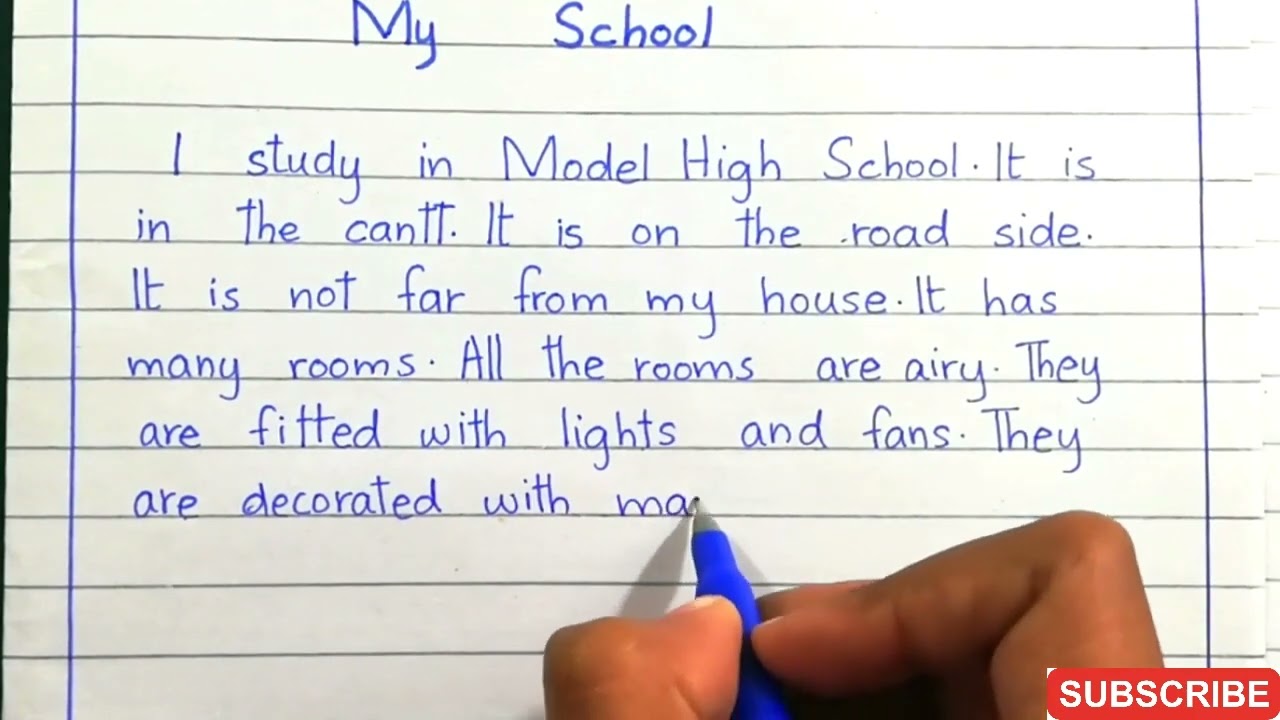 My School
I study in Model High School. It is
in the cantt. It is on the road side.
It is not far from my house. It has
many rooms. All the rooms are airy. They
are fitted with lights and fans. They
are decorated with ma
SUBSCRIBE